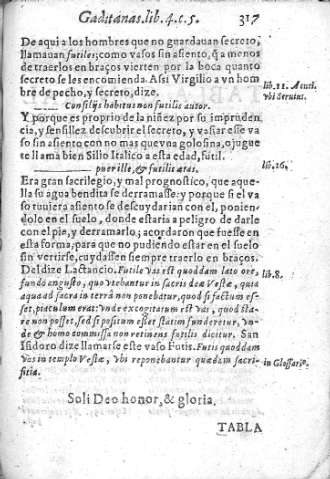 Gaditanas. lib. 4. c. 5. 317
De aqui a los hombres que no guardauan secreto,
llamauan futiles; como vasos sin asiento, q̃ a menos
de traerlos en braços vierten por la boca quanto
secreto se les encomienda. Assi Virgilio a vn hom
bre de pecho, y secreto, dize.
lib. 11. Aeneid.
vbi Seruius.
Consilijs habitus non futilis autor.
Y porque es proprio de la niñez por su impruden
cia, y sensillez descubrir el secreto, y vasiar esse va
so sin asiento con no mas que vna golosina, o jugue
te llama bien Silio Italico a esta edad, futil.
lib. 16.
puerille, & futilis ætas.
Era gran sacrilegio, y mal prognostico, que aque-
lla su agua bendita se derramasse: y porque si el va
so tuuiera asiento se descuydarian con el, ponien-
dolo en el suelo, donde estaria a peligro de darle
con el pie, y derramarlo; acordaron que fuesse en
esta forma, para que no pudiendo estar en el suelo
sin vertirse, cuydassen siempre traerlo en braços.
Del dize Lactancio. Futile vas est quoddam lato ore,
lib. 8.
fundo angusto, quo vtebantur in sacris deæ Vestæ, quia
aqua ad sacra in terrâ non ponebatur, quod si factum es-
set, piaculum erat: vnde excogitatum est vas, quod sta-
re non posset, sed si positum esset statim funderetur, vn-
de & homo commissa non retinens futilis dicitur. San
Isidoro dize llamarse este vaso Futis. Futis quoddam
vas in templo Vestæ, vbi reponebantur quædam sacri-
in Glossario.
fitia.
Soli Deo honor, & gloria.
TABLA